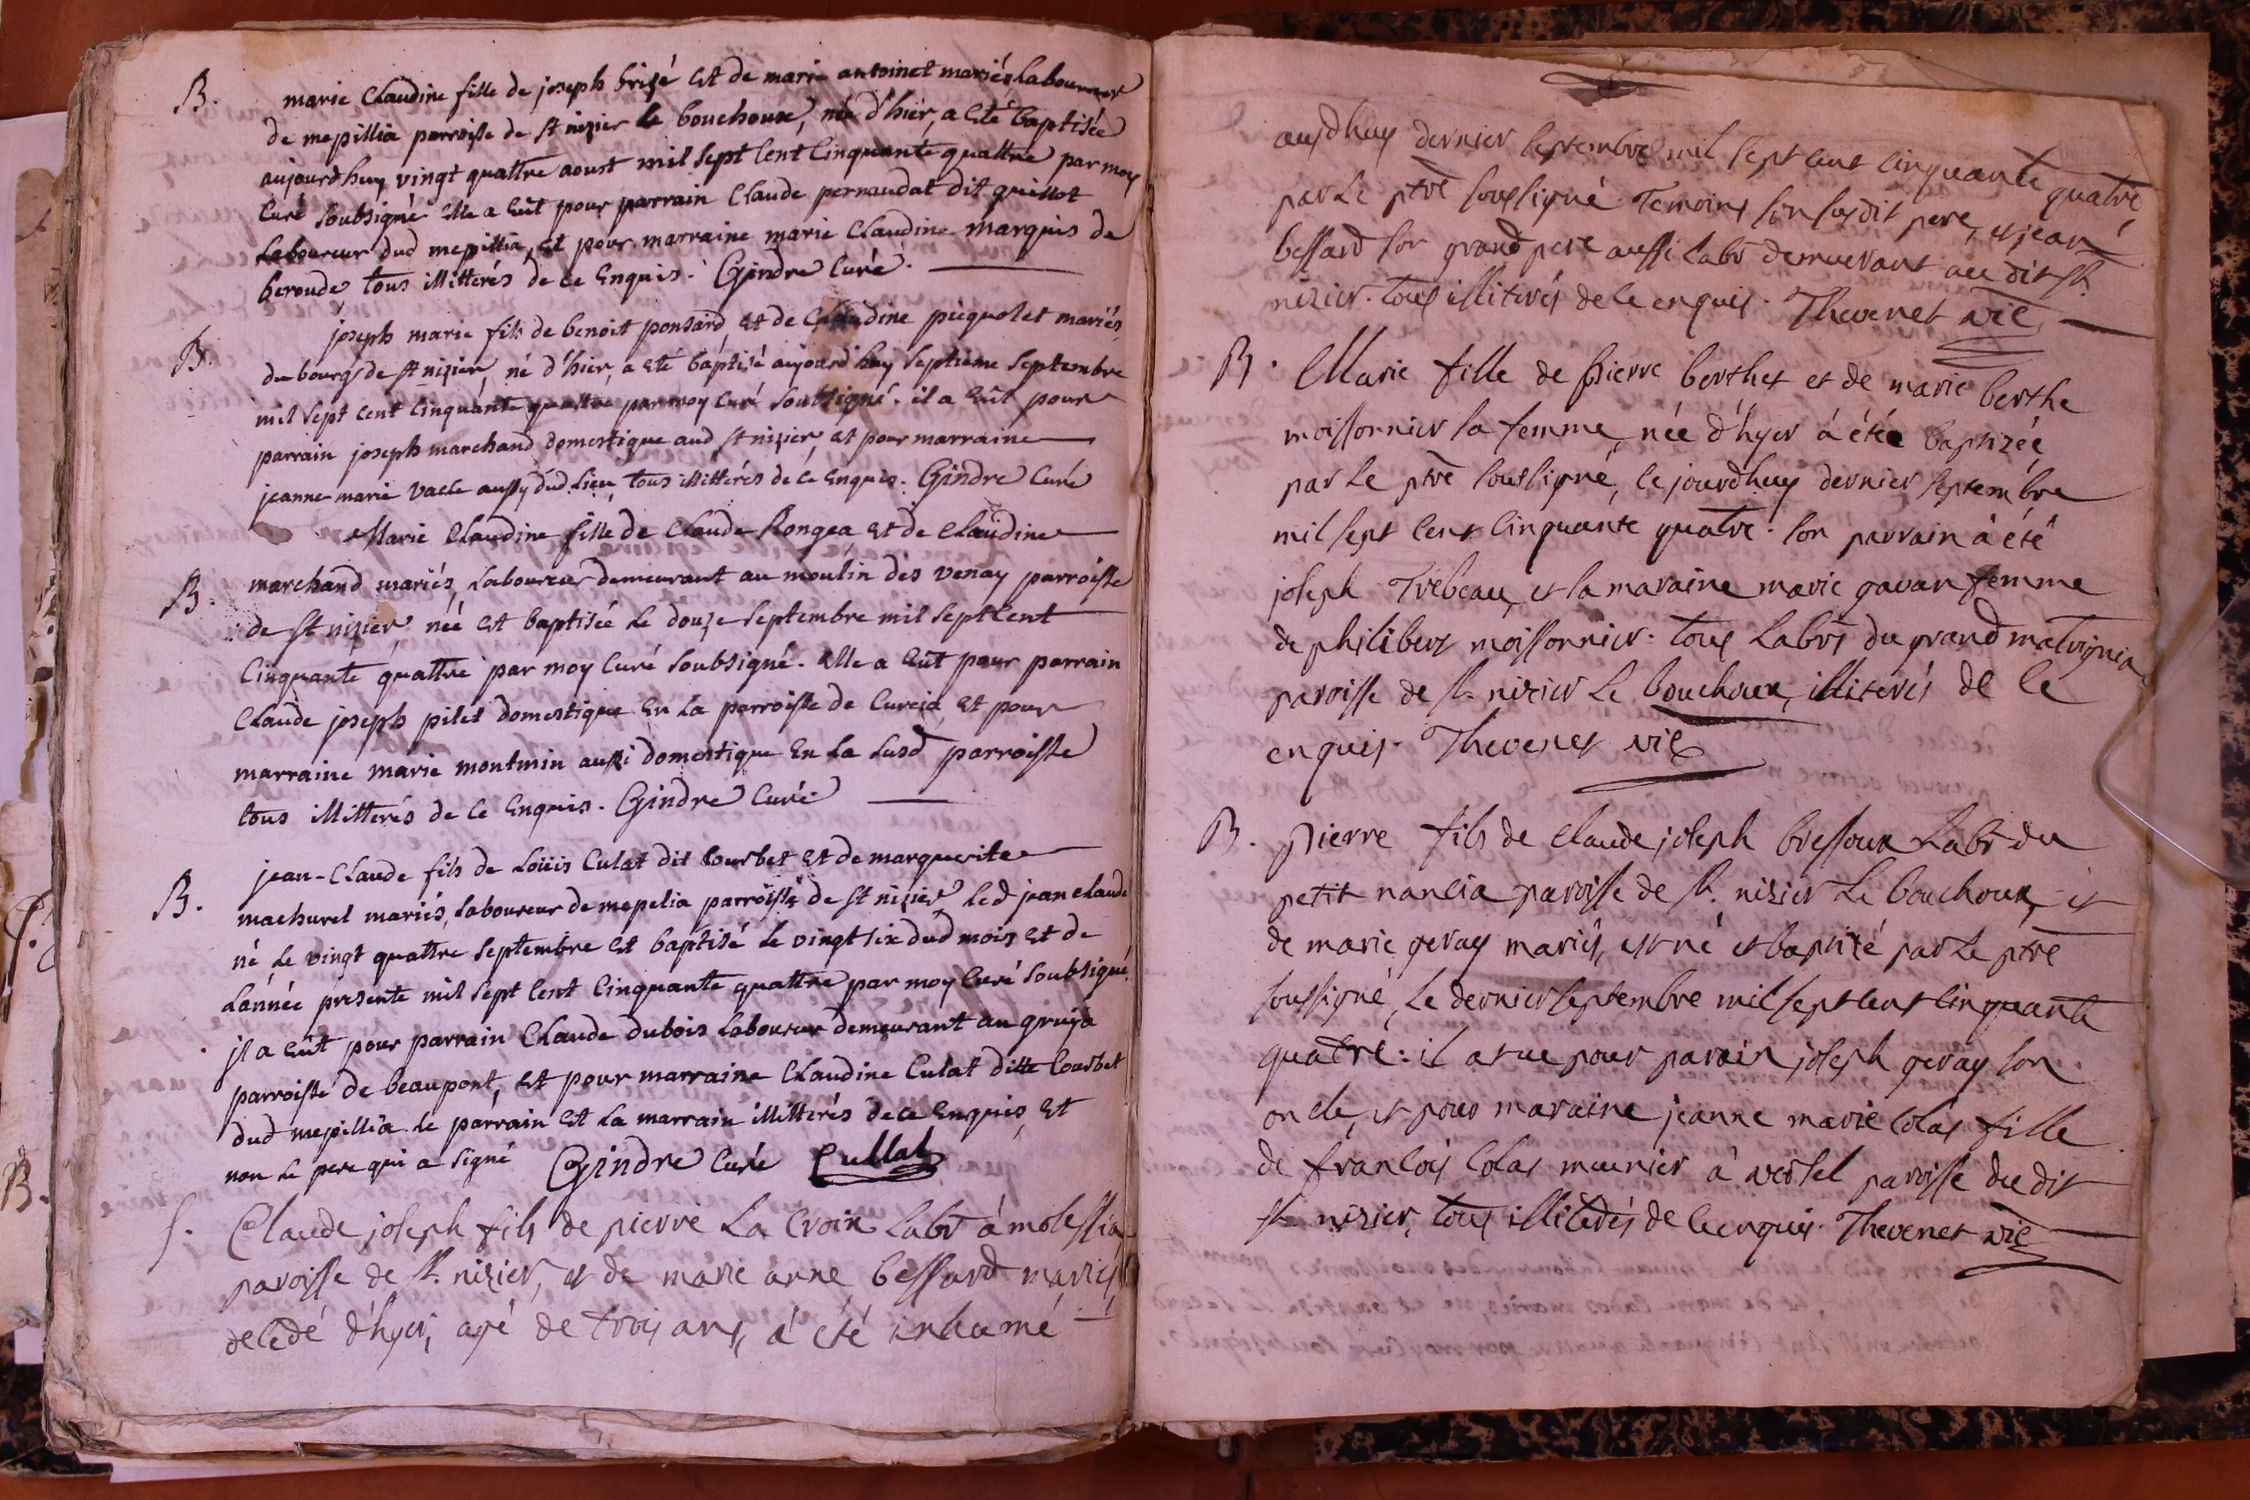 B. marie Claudine fille de joseph brizé et de marie antoinet mariés Laboureur
de mepillia parroisse de st nizier le bouchoux, née d'hier, a eté baptisée
aujourdhuy vingt quattre aoust mil sept cent cinquante quattre par moy
curé soubsigné elle a eut pour parrain Claude pernaudat dit guillot
Laboureur dud mepillia, et pour marraine marie Claudine marquis de
beroude tous illitterés de ce enquis. Gindre curé.
B. joseph marie fils de benoit ponsard et de Claudine picquolet mariés
du bourg de st nizier, né d'hier, a eté baptisé aujourd'huy septieme septembre
mil sept cent cinquante quattre par moy curé soubsigné. il a eût pour
parrain joseph marchand domestique aud st nizier, et pour marraine
jeanne marie vacle aussy dud. Lieu, tous illitterés de ce enquis. Gindre curé
Marie Claudine fille de Claude Rongea et de Claudine
B. marchand mariés, Laboureur demeurant au moulin dès venay parroisse
de st nizier née et baptisée le douze septembre mil sept cent
cinquante quattre par moy curé soubsigné. elle a eût pour parrain
Claude joseph pilet domestique en la parroisse de curcia, et pour
marraine marie montmin aussi domestique en la susd parroisse
tous illitterés de ce enquis. Gindre curé
B. jean-Claude fils de Loüis Culat dit Courbet et de marguerite
machurel mariés, laboureur de mepelia parroisse de st nizier led jean claude
né le vingt quattre septembre et baptisé le vingt six dud mois et de
l'année presente mil sept cent cinquante quattre par moy curé soubsigné.
jl a eût pour parrain Claude dubois laboureur demeurant au gruja
parroisse de beaupont, et pour marraine Claudine Culat ditte Courbet
dud mepillia le parrain et la marrain illitterés de ce enquis, et
non le pere qui a signé Gindre curé Cullat
s. Claude joseph fils de pierre La Croix Labr à molessia
paroisse de st. nizier, et de marie anne bessard mariés,
decédé d'hyer, agé de trois ans, à été inhumé
aujdhuy dernier septembre mil sept cent cinquante quatre
par le ptre soussigné Temoins son susdit pere, et jean
bessard son grand pere aussi labr demeurant au dit st.
nizier. tous illiterés de ce enquis. Thevenet vic
B. Marie fille de pierre berthet et de marie berthe
moissonnier sa femme, née d'hyer à étée baptizée
par le ptre soussigné, ce jourdhuy dernier septembre
mil sept cent cinquante quatre. son parrain à été
joseph Trebeau, et sa maraine marie gavan femme
de philibert moissonnier. tous Labrs du grand malvignia
paroisse de st. nizier le bouchoux, illiterés de ce
enquis. Thevenet vic
B. Pierre fils de claude joseph bressoux Labr du
petit nancia paroisse de st. nizier le bouchoux, et
de marie geray mariés, est né et baptizé par le ptre
soussigné, le dernier septembre mil sept cent cinquante
quatre: il a eue pour parain joseph geray son
oncle, et pour maraine jeanne marie Colas fille
de françois Colas meunier à versel paroisse du dit
st nizier, tous illiterés de ce enquis. Thevenet vic
B.